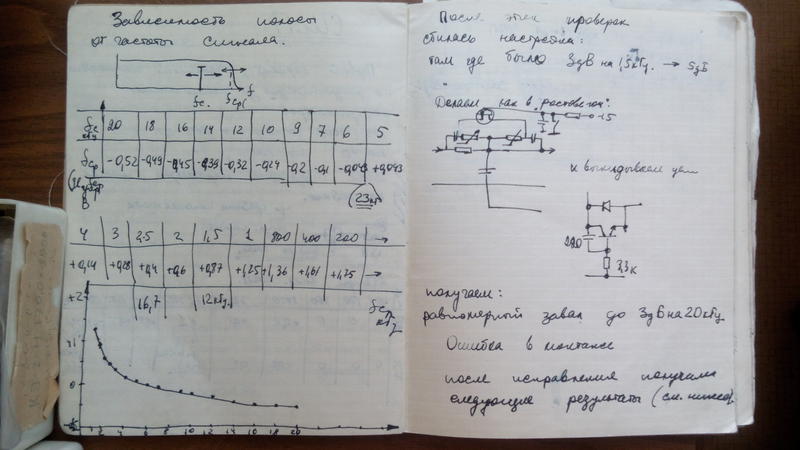 Зависимость полосы
от частоты сигнала.
fc. fср f
fc кгц 20 18 16 14 12 10 9 7 6 5
fср -0,52 -0,49 -0,45 -0,39 -0,32 -0,24 -0,2 -0,1 -0,043 +0,043
В
23кгц
4 3 2.5 2 1,5 1 800 400 200 →
+0,14 +0,28 +0,4 +0,6 +0,87 +1,25 +1,36 +1,61 +1,75 →
16,7 12кгц.
fc, кгц
+2
+1
0
2 4 6 8 10 12 14 16 18 20
После этих проверок
сбилась настройка:
там где было 3дБ на 15кгц. → 5дБ
Делаем как в "ростовегой":
-15
и выкидываем узел
220
3,3к
получаем:
равномерный завал до 3дБ на 20кгц
Ошибка в монтаже
после исправления получили
следующие результаты (см. ниже).